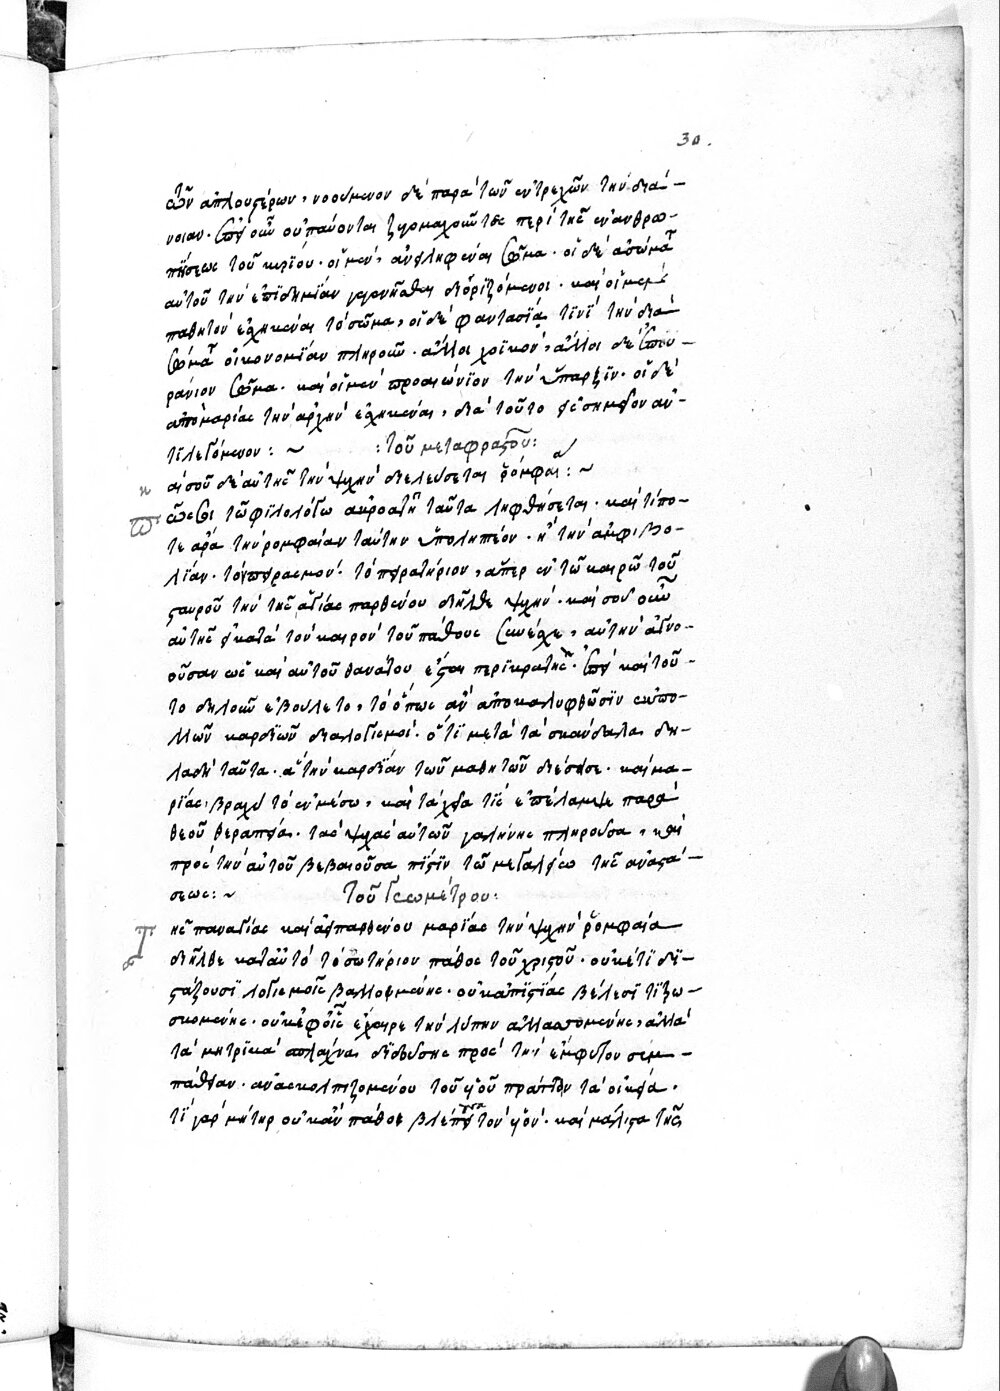 30.
τῶν ἁπλουστέρων, νοούμενον δὲ παρὰ τῶν ἐντρεχῶν τὴν διά-
νοιαν. ἐπεὶ οὖν οὐ παύονται ζυγομαχοῦντες περὶ τῆς ἐνανθρω-
πήσεως τοῦ κυρίου. οἱ μὲν, ἀνειληφέναι σῶμα. οἱ δὲ ἀσώματον
αὐτοῦ τὴν ἐπιδημίαν γεγενῆσθαι διοριζόμενοι. καὶ οἱ μὲν
παθητὸν ἐσχηκέναι τὸ σῶμα, οἱ δὲ φαντασίᾳ τινὶ τὴν διὰ
σώματος οἰκονομίαν πληροῦν. ἄλλοι χοϊκὸν, ἄλλοι δὲ ἐπου-
ράνιον σῶμα. καὶ οἱ μὲν προαιώνιον τὴν ὕπαρξιν. οἱ δὲ
ἀπὸ μαρίας τὴν ἀρχὴν ἐσχηκέναι, διὰ τοῦτο εἰς σημεῖον ἀν-
τιλεγόμενον: ~ :τοῦ μεταφραστοῦ:
καὶ σοῦ δὲ αὐτῆς τὴν ψυχὴν διελεύσεται ῥομφαία: ~
πῶς σοι τῷ φιλολόγῳ ἀκροατῇ ταῦτα ληφθήσεται. καὶ τί πο-
τε ἄρα τὴν ῥομφαίαν ταύτην ὑποληπτέον. ἢ τὴν ἀμφιβο-
λίαν. τὸν πειρασμόν. τὸ πειρατήριον, ἅπερ ἐν τῷ καιρῷ τοῦ
σταυροῦ τὴν τῆς ἁγίας παρθένου διῆλθε ψυχήν. καὶ σοῦ οὖν
αὐτῆς ἡ κατὰ τὸν καιρὸν τοῦ πάθους συνέσχε, αὐτὴν ἀγνο-
οῦσαν ὡς καὶ αὐτοῦ θανάτου ἔσται περικρατής. ἐπεὶ καὶ τοῦ-
το δηλοῦν ἐβούλετο, τὸ ὅπως ἂν ἀποκαλυφθῶσιν ἐκ πο-
λλῶν καρδιῶν διαλογισμοί. ὅτι μετὰ τὰ σκάνδαλα δη-
λαδὴ ταῦτα. ἃ τὴν καρδίαν τῶν μαθητῶν διέσεισε. καὶ μα-
ρίας, βραχὺ τὸ ἐν μέσῳ, καὶ ταχεῖά τις ἐπέλαμψε παρὰ
θεοῦ θεραπεία. τὰς ψυχὰς αὐτῶν γαλήνης πληροῦσα, καὶ
πρὸς τὴν αὐτοῦ βεβαιοῦσα πίστιν τῷ μεγαλείῳ τῆς ἀναστά-
σεως: ~ Τοῦ Γεωμέτρου:
Τῆς παναγίας καὶ ἀειπαρθένου μαρίας τὴν ψυχὴν ῥομφαία
διῆλθε κατ' αὐτὸ τὸ σωτήριον πάθος τοῦ χριστοῦ. οὐκέτι δι-
στάζουσι λογισμοῖς βαλλομένης. οὐκ ἀπιστίας βέλεσι τιτρω-
σκομένης. οὐκ ἐφ' οἷς ἔχαιρε τὴν λύπην ἀλλαττομένης, ἀλλὰ
τὰ μητρικὰ σπλάγχνα διδούσης πρὸς τὴν ἔμφυτον συμ-
πάθειαν. ἀνασκολοπιζομένου τοῦ υἱοῦ πράττειν τὰ οἰκεῖα.
τί γὰρ μήτηρ οὐκ ἂν πάθοι βλέπουσα τὸν υἱόν. καὶ μάλιστα τῆς